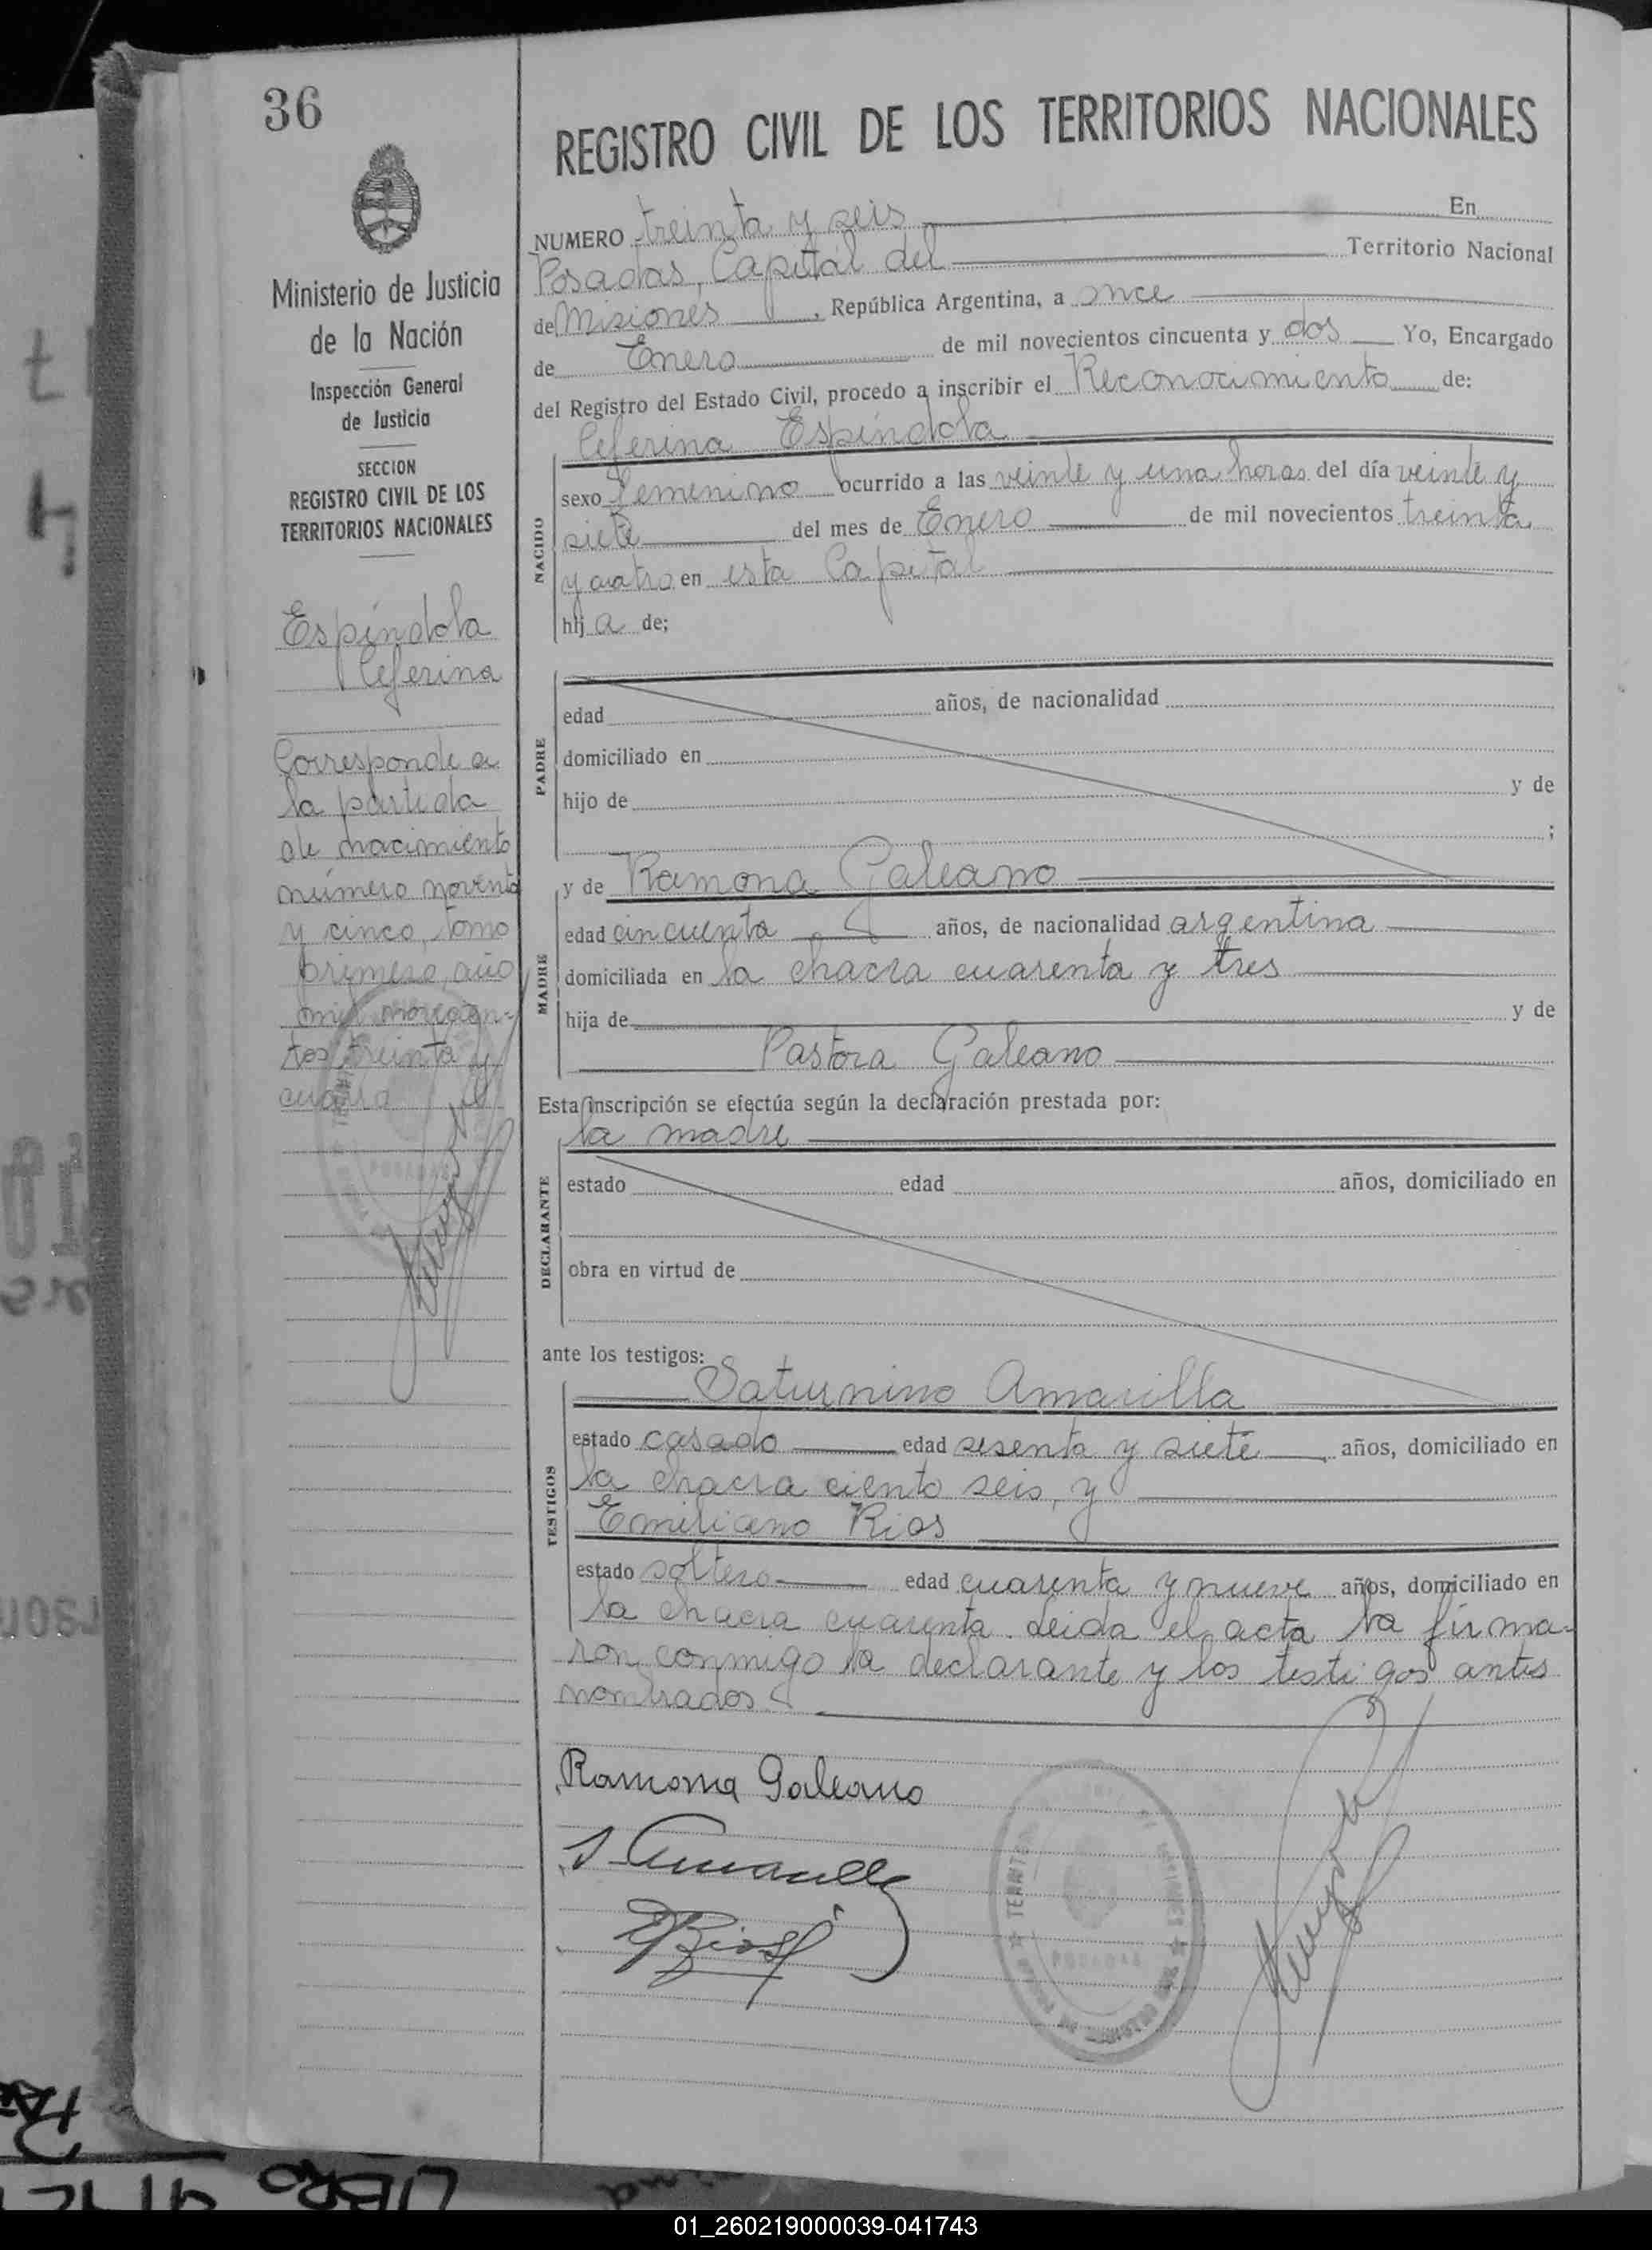 36
REGISTRO CIVIL DE LOS TERRITORIOS NACIONALES
Ministerio de Justicia
de la Nación
Inspección General
de Justicia
SECCION
REGISTRO CIVIL DE LOS
TERRITORIOS NACIONALES
Espíndola
Ceferina
Corresponde a
la partida
de nacimiento
número noventa
y cinco, tomo
primero, año
mil novecien-
tos treinta y
cuatro
NUMERO treinta y seis En
Posadas, Capital del Territorio Nacional
de Misiones, República Argentina, a once
de Enero de mil novecientos cincuenta y dos Yo, Encargado
del Registro del Estado Civil, procedo a inscribir el Reconocimiento de:
Ceferina Espíndola
NACIDO
sexo femenino ocurrido a las veinte y una horas del día veinte y
siete del mes de Enero de mil novecientos treinta
y cuatro en esta Capital
hija de;
PADRE
edad años, de nacionalidad
domiciliado en
hijo de y de
;
MADRE
y de Ramona Galeano
edad cincuenta años, de nacionalidad argentina
domiciliada en la chacra cuarenta y tres
hija de y de
Pastora Galeano
Esta inscripción se efectúa según la declaración prestada por:
la madre
DECLARANTE
estado edad años, domiciliado en
obra en virtud de
ante los testigos:
Saturnino Amarilla
TESTIGOS
estado casado edad sesenta y siete años, domiciliado en
la chacra ciento seis, y
Emiliano Rios
estado soltero edad cuarenta y nueve años, domiciliado en
la chacra cuarenta. Leida el acta la firma-
ron conmigo la declarante y los testigos antes
nombrados
Ramona Galeano
S Amarilla
E Rios
POSADAS
LIBRO
01_260219000039-041743